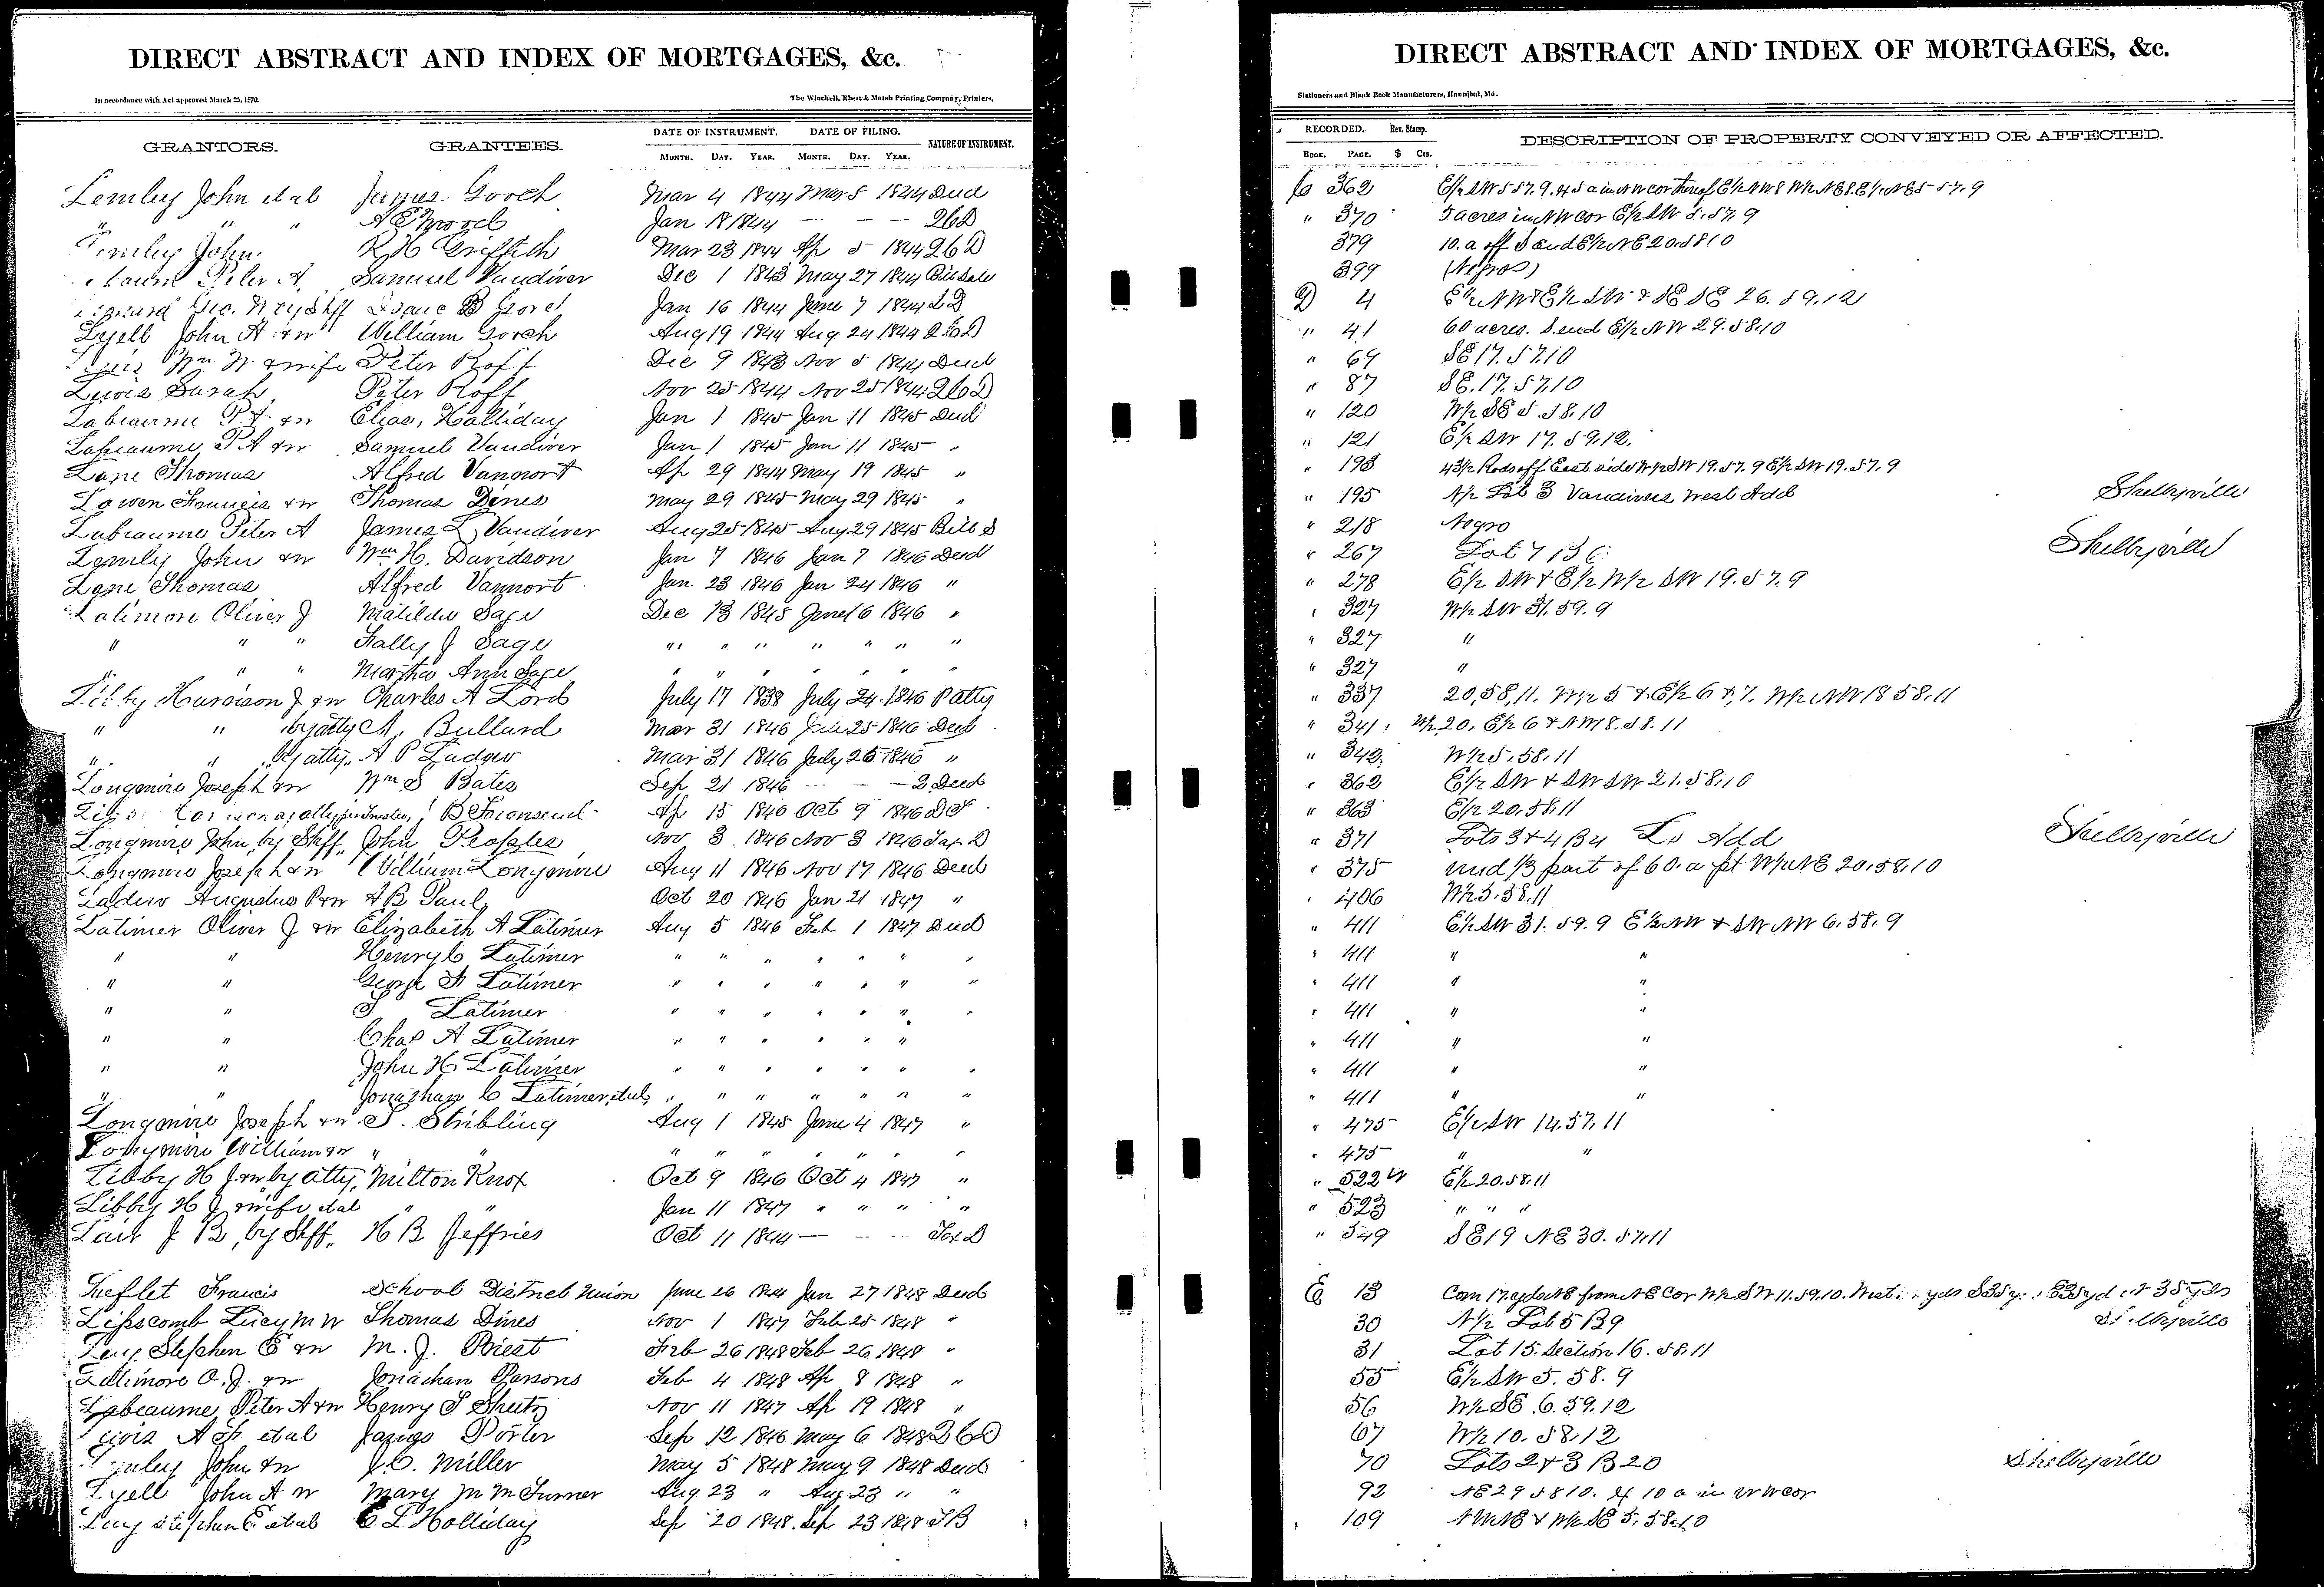 DIRECT ABSTRACT AND INDEX OF MORTGAGES, &c.
In accordance with Act approved March 25, 1870. The Winchell, Ebert & Marsh Printing Company, Printers,
GRANTORS. GRANTEES. DATE OF INSTRUMENT. DATE OF FILING. NATURE OF INSTRUMENT.
MONTH. DAY. YEAR. MONTH. DAY. YEAR.
Lemley John et al James Gooch Mar 4 1844 Mar 5 1844 Deed
" " " A E Wood Jan 18 1844 — — — 2 6 D
Lemley John R H Griffith Mar 23 1844 Ap 5 1844 2 6 D
Peter A Samuel Vandiver Dec 1 1843 May 27 1844 Bill Sale
Geo. by Shff Isaac B Jan 16 1844 June 7 1844
Lyell John A & w William Gooch Aug 19 1844 Aug 24 1844 2 6 D
Wm W & wife Peter Roff Dec 9 1843 Nov 5 1844 Deed
Lewis Sarah Peter Roff Nov 25 1844 Nov 25 1844 2 6 D
Labeaume P A & w Elias Halliday Jan 1 1845 Jan 11 1845 Deed
Labeaume P A & w Samuel Vandiver Jan 1 1845 Jan 11 1845 "
Lane Thomas Alfred Vannort Ap 29 1844 May 19 1845 "
Lowen Francis & w Thomas Dines May 29 1845 May 29 1845 "
Labeaume Peter A James L Vandiver Aug 25 1845 Aug 29 1845 Bill S
Lemly John & w Wm H. Davidson Jan 7 1846 Jan 7 1846 Deed
Lane Thomas Alfred Vannort Jan 23 1846 Jan 24 1846 "
Latimore Oliver J Matilda Sage Dec 13 1845 June 16 1846 "
" " " Sally J Sage " " " " " " "
" " " Martha Ann Sage " " " " " " "
Libby Harrison J & w Charles A Lord July 17 1838 July 24 1846 P atty
" " by atty A. Bullard Mar 31 1846 July 25 1846 Deed
" " by atty A P Ladew Mar 31 1846 July 25 1846 "
Longmire Joseph & w Wm S Bates Sep 21 1846 — — — 2 Deed
B Townsend Ap 15 1840 Oct 9 1846 D T
Longmire John by Shff. John Peoples Nov 3 1846 Nov 3 1846 Tax D
Longmire Joseph & w William Longmire Aug 11 1846 Nov 17 1846 Deed
Ladew Augustus P & w A B Paul Oct 20 1846 Jan 21 1847 "
Latimer Oliver J & w Elizabeth A Latimer Aug 5 1846 Feb 1 1847 Deed
" " Henry C Latimer " " " " " " "
" " George Latimer " " " " " " "
" " Latimer " " " " " " "
" " Chas A Latimer " " " " " "
" " John H Latimer " " " " " " "
" " Jonathan C Latimer, et als " " " " " " "
Longmire Joseph & w S. Stribling Aug 1 1845 June 4 1847 "
Longmire William & w " " " " " " " " "
Libby H J & w by atty, Milton Knox Oct 9 1846 Oct 4 1847 "
Libby H J & wife et al " " Jan 11 1847 " " " "
Lair J B, by Shff. H B Jeffries Oct 11 1844 — — — Tax D
Leflet Francis School District Union June 26 1844 Jan 27 1848 Deed
Lipscomb Lucy M W Thomas Dines Nov 1 1847 Feb 25 1848 "
Stephen E & w M. J. Priest Feb 26 1848 Feb 26 1848 "
Latimore O. J. & w Jonathan Parsons Feb 4 1848 Ap 8 1848 "
Labeaume Peter A & w Henry S Sheetz Nov 11 1847 Ap 19 1848 "
et al Porter Sep 12 1846 May 6 1848 2 6 D
John & w J. C. Miller May 5 1848 May 9 1848 Deed
Lyell John A w Mary M M Turner Aug 23 " Aug 23 " "
Stephen E et al E L Holliday Sep 20 1848 Sep 23 1848 T B
DIRECT ABSTRACT AND INDEX OF MORTGAGES, &c.
Stationers and Blank Book Manufacturers, Hannibal, Mo.
RECORDED. Rev. Stamp. DESCRIPTION OF PROPERTY CONVEYED OR AFFECTED.
BOOK. PAGE. $ Cts.
C 362
" 370 5 acres in NW cor E½ SW 5. 57. 9
379 10. a off S end E½ NE 20. 58 10
399 (Negros)
D 4 E½ NW & E½ SW & SE SE 26. 59. 12
" 41 60 acres. S end E½ NW 29. 58. 10
" 69 SE 17. 57. 10
" 87 SE. 17. 57. 10
" 120 W½ SE 5. 58. 10
" 121 E½ SW 17. 59. 12.
" 193 43½ Rods off East side W½ SW 19. 57. 9 E½ SW 19. 57. 9
" 195 N½ Lot 3 Vandivers West Add Shelbyville
" 218 Negro
" 267 Lot 7 B 6 Shelbyville
" 278 E½ SW & E½ W½ SW 19. 57. 9
" 327 W½ SW 31. 59. 9
" 327 "
" 327 "
" 337 20, 58, 11. W½ 5 & E½ 6 & 7. W½ NW 18 58. 11
" 341 W½ 20. E½ 6 & NW 18. 58. 11
" 342 W½ 5. 58. 11
" 362 E½ SW & SW SW 21. 58. 10
" 363 E½ 20. 58. 11
" 371 Lots 3 & 4 B 4 Add Shelbyville
" 375 und ⅓ part of 60. a pt W½ NE 20. 58. 10
" 406 W½ 5. 58. 11
" 411 E½ SW 31. 59. 9 E½ NW & SW NW 6. 58. 9
" 411 " "
" 411 " "
" 411 " "
" 411 " "
" 411 " "
" 411 " "
" 475 E½ SW 14. 57. 11
" 475 " "
" 522 E½ 20. 58. 11
" 523 " " "
" 549 SE 19 NE 30. 57. 11
E 13 Com 17 yds NE from NE Cor W½ SW 11. 59. 10.
30 N½ Lot 5 B 9 Shelbyville
31 Lot 15. Section 16. 58. 11
55 E½ SW 5. 58. 9
56 W½ SE 6. 59. 12
67 W½ 10. 58. 12
70 Lots 2 & 3 B 20 Shelbyville
92 NE 29 58 10. 10 a in NW cor
109 NW NE & W½ SE 5. 58. 10